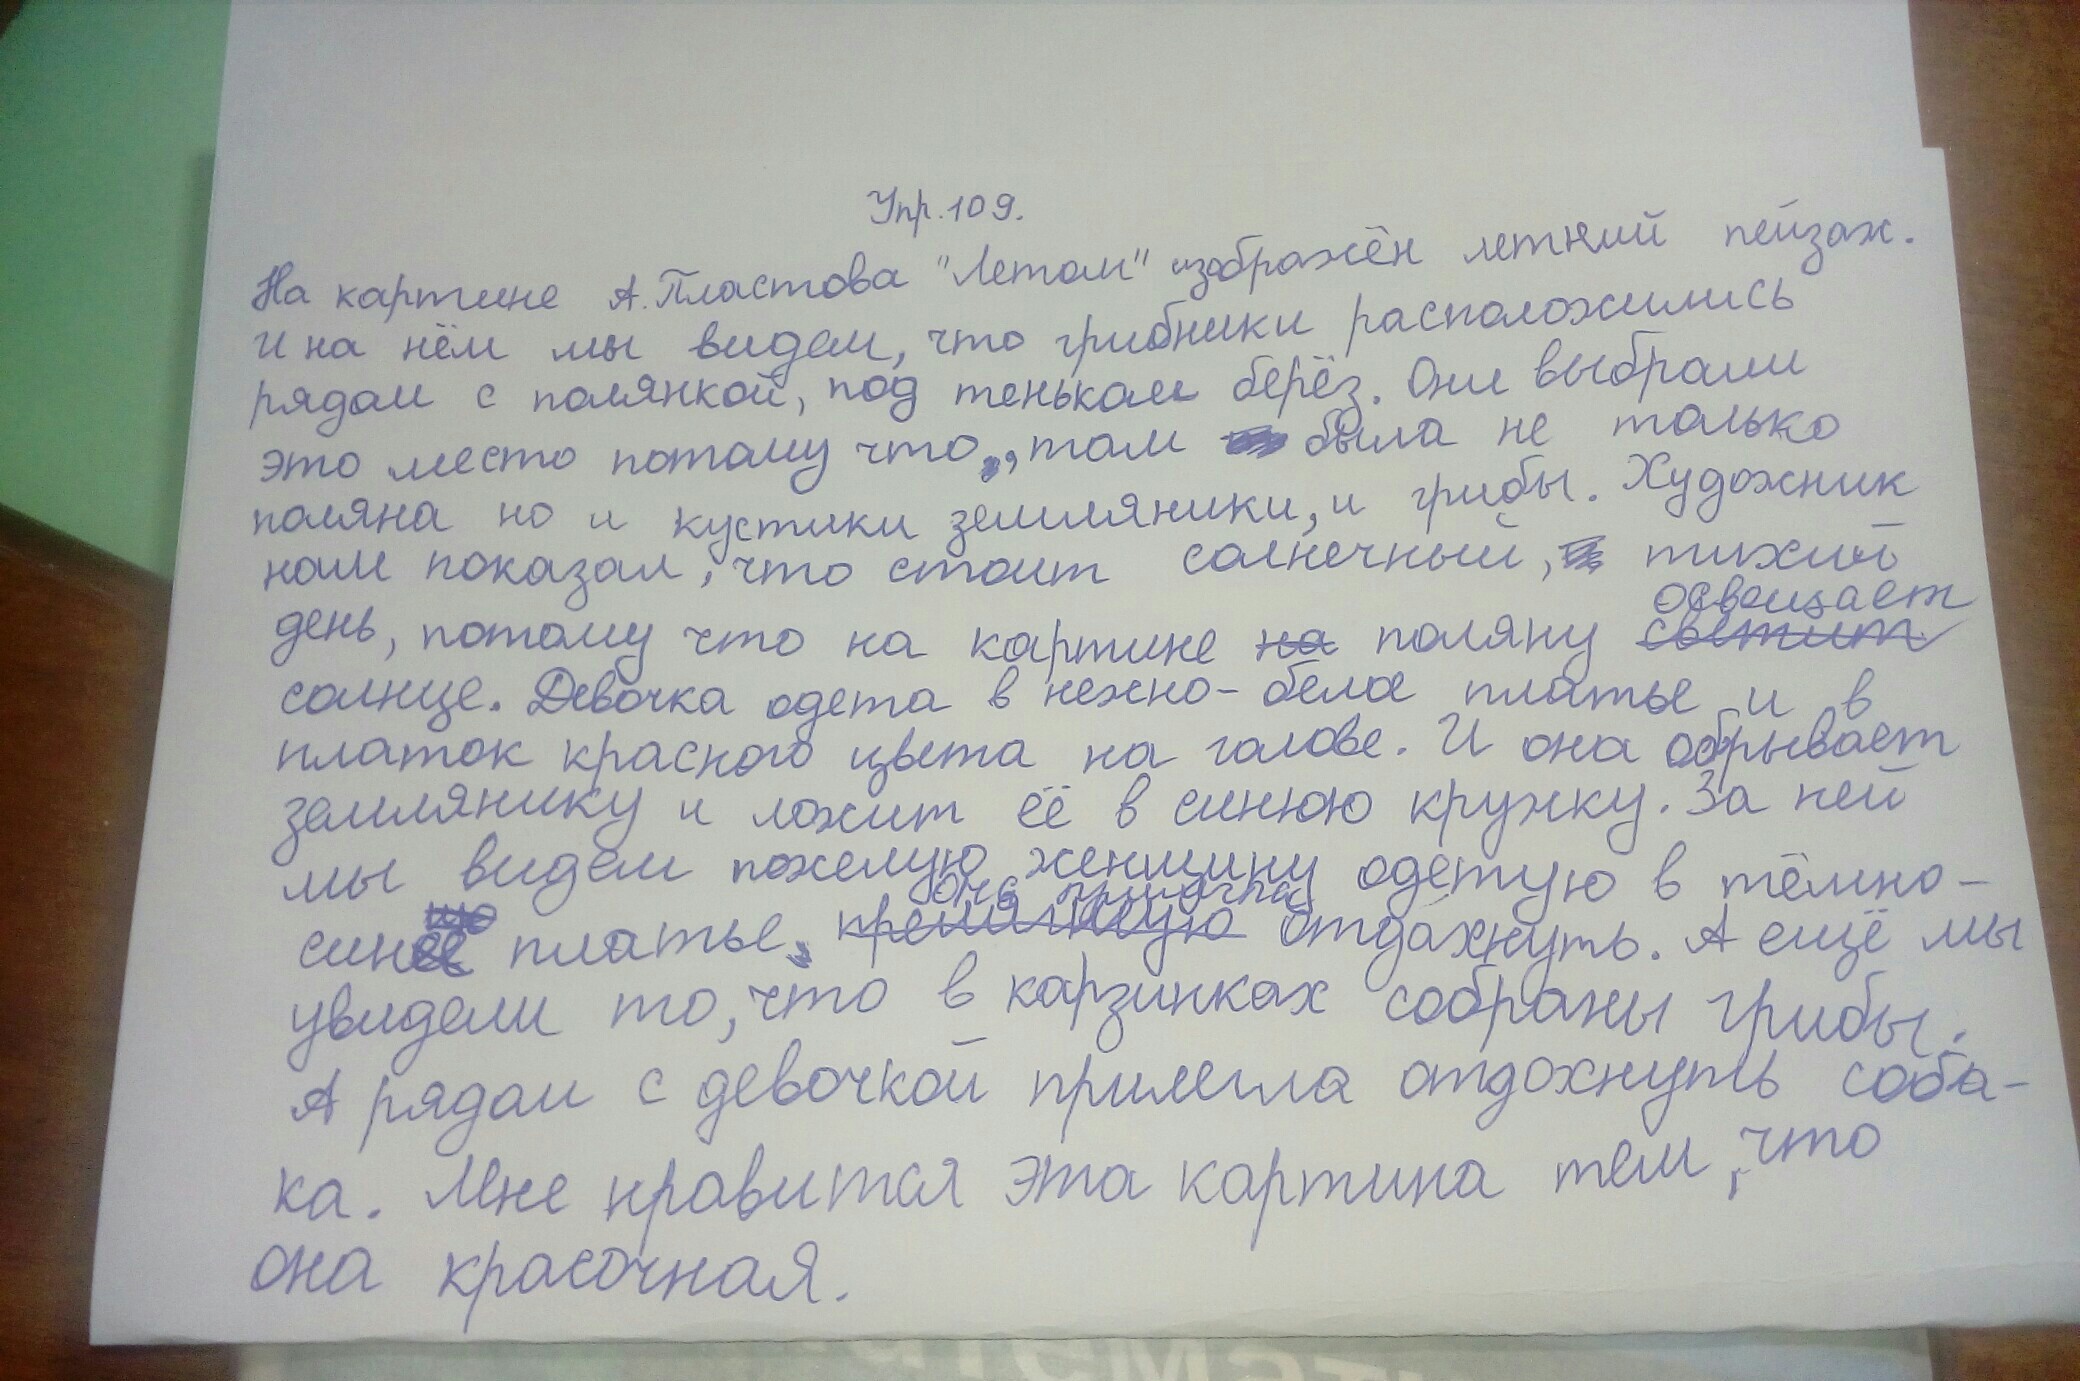 Упр. 109.
На картине А. Пластова "Летом" изображён летний пейзаж.
И на нём мы видем, что грибники расположились
рядом с полянкой, под теньком берёз. Они выбрали
это место потому что, там была не только
поляна но и кустики земляники, и грибы. Художник
нам показал, что стоит солнечный, тихий
день, потому что на картине на поляну светит освещает
солнце. Девочка одета в нежно-белое платье и в
платок красного цвета на голове. И она обрывает
землянику и ложит её в синюю кружку. За ней
мы видем пожелую женщину одетую в тёмно-
синее платье, она прилегла отдахнуть. А ещё мы
увидели то, что в карзинках собраны грибы.
А рядом с девочкой прилегла отдохнуть соба-
ка. Мне нравится эта картина тем, что
она красочная.